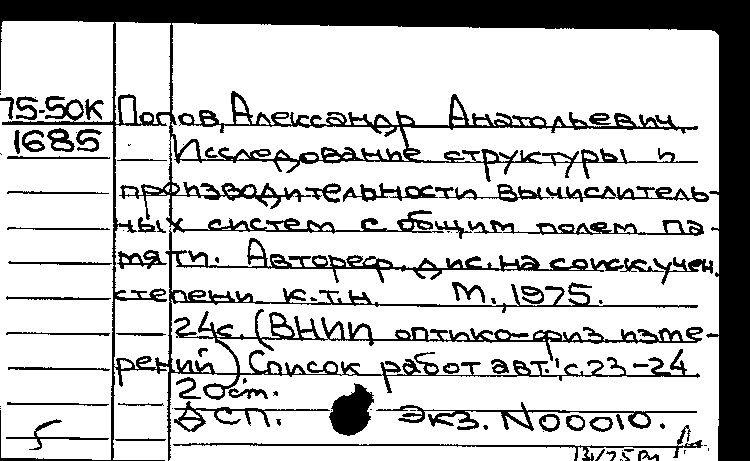 75-50К Попов, Александр Анатольевич.
1685 Исследование структуры и
производительности вычислитель-
ных систем с общим полем па-
мяти. Автореф. дис. на соиск. учен.
степени к.т.н. М., 1975.
24с. (ВНИИ оптико-физ. изме-
рений) Список работ авт.: с.23-24
20 ст.
ДСП. Экз. N00010.
5